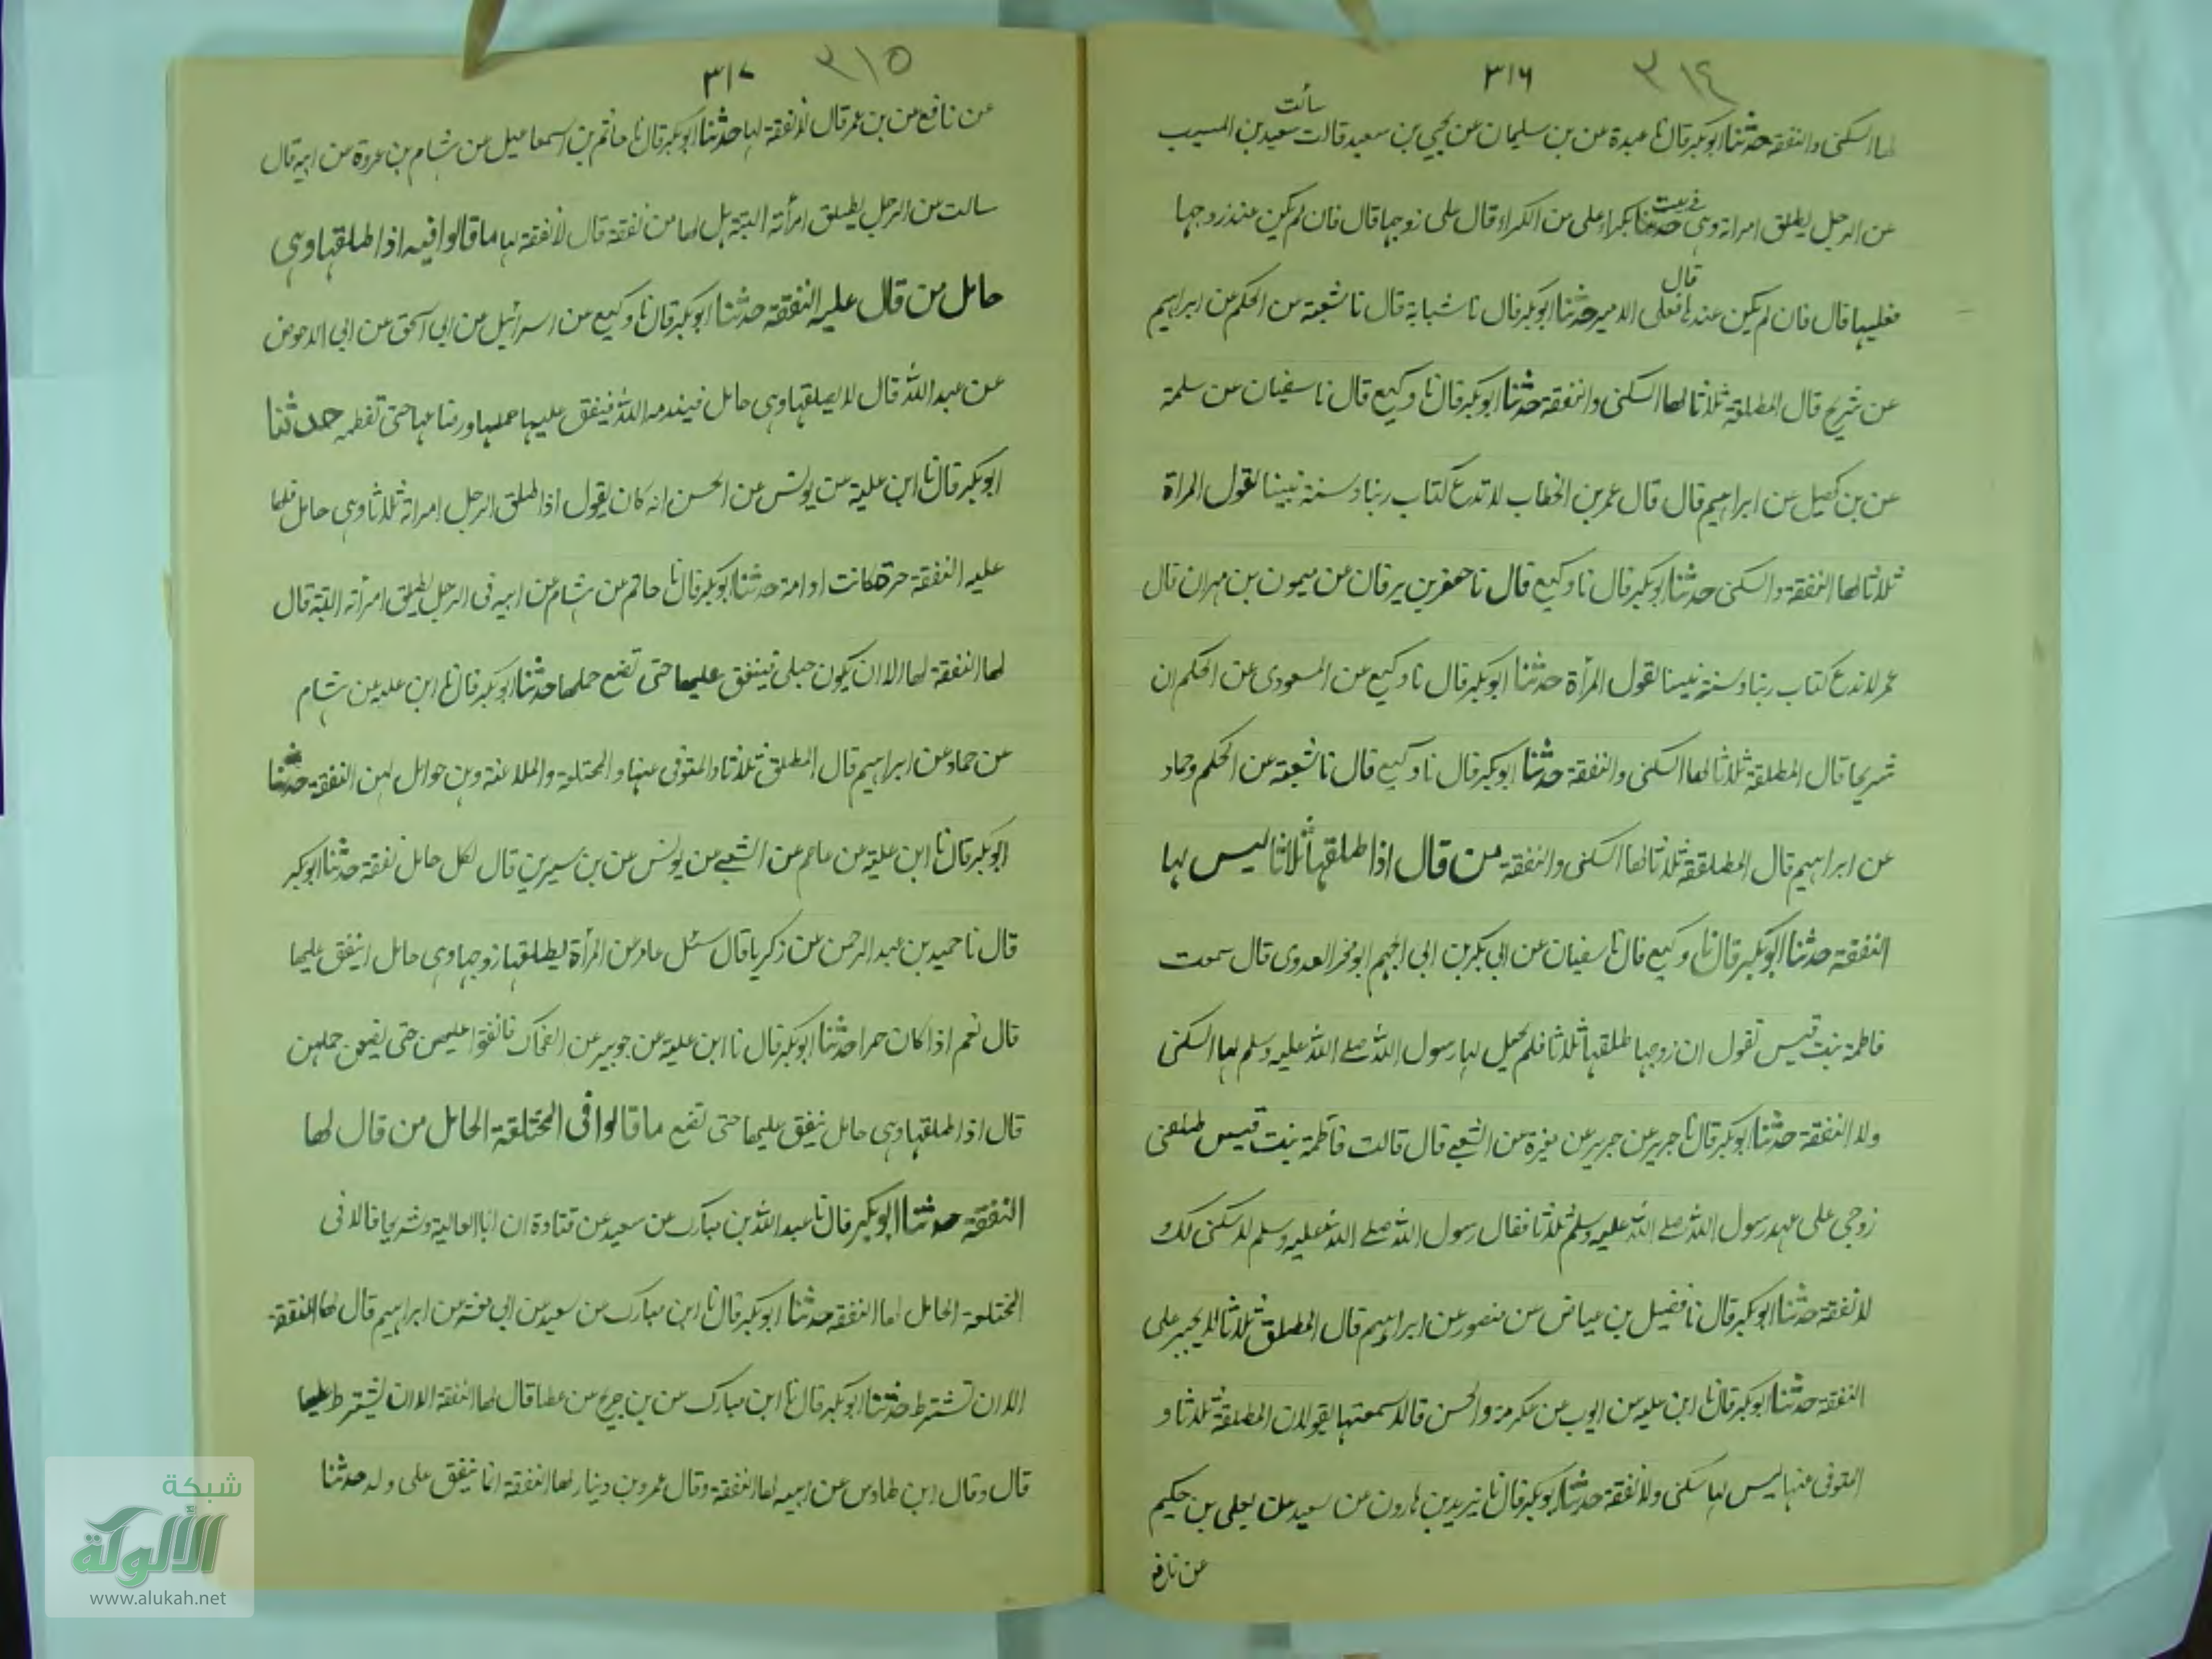 ٣١٦ ٣١٤
سألت
لها السكنى والنفقة حدثنا ابو بكر قال نا عبدة عن بن سليمان عن يحيى بن سعيد قالت سعيد بن المسيب
عن الرجل يطلق امراته وهى بكراء على من الكراء قال على زوجها قال فان لم يكن عند زوجها
قال
فعليها قال فان لم يكن عندها فعلى الامير حدثنا ابو بكر قال نا شبابة قال نا شعبة عن الحكم عن ابراهيم
عن شريح قال المطلقة ثلاثا لها السكنى والنفقة حدثنا ابو بكر قال نا وكيع قال نا سفيان عن سلمة
عن بن كهيل عن ابراهيم قال قال عمر بن الخطاب لا ندع كتاب ربنا وسنة نبينا لقول المراة
ثلاثا لها النفقة والسكنى حدثنا ابو بكر قال نا وكيع قال نا جعفر بن برقان عن ميمون بن مهران قال
عمر لا ندع كتاب ربنا وسنة نبينا لقول المرأة حدثنا ابو بكر قال نا وكيع عن المسعودى عن الحكم ان
شريحا قال المطلقة ثلاثا لها السكنى والنفقة حدثنا ابو بكر قال نا وكيع قال نا شعبة عن الحكم وحماد
عن ابراهيم قال المطلقة ثلاثا لها السكنى والنفقة من قال اذا طلقها ثلاثا ليس لها
النفقة حدثنا ابو بكر قال نا وكيع قال نا سفيان عن ابى بكر بن ابى الجهم ابو مخر العدوى قال سمعت
فاطمة بنت قيس تقول ان زوجها طلقها ثلاثا فلم يجعل لها رسول الله صلى الله عليه وسلم لها السكنى
ولا النفقة حدثنا ابو بكر قال نا جرير عن جرير عن مغيرة عن الشعبى قال قالت فاطمة بنت قيس طلقنى
زوجى على عهد رسول الله صلى الله عليه وسلم ثلاثا فقال رسول الله صلى الله عليه وسلم لا سكنى لك و
لا نفقة حدثنا ابو بكر قال نا فضيل بن عياض عن منصور عن ابراهيم قال المطلق ثلاثا لا يجبر على
النفقة حدثنا ابو بكر قال نا ابن علية عن ايوب عن عكرمة والحسن قالا سمعتها يقولان المطلقة ثلاثا و
المتوفى عنها ليس لها سكنى ولا نفقة حدثنا ابو بكر قال نا يزيد بن هارون عن سعيد عن يعلى بن حكيم
عن نافع
٣١٧ ٣١٥
عن نافع عن بن عمر قال لا نفقة لها حدثنا ابو بكر قال نا حاتم بن اسمعاعيل عن هشام بن عروة عن ابيه قال
سالت عن الرجل يطلق امرأته البتة هل لها من نفقة قال لا نفقة لها ما قالوا فيه اذا طلقها وهى
حامل من قال عليه النفقة حدثنا ابو بكر قال نا وكيع عن اسرائيل عن ابى اسحق عن ابى الاحوص
عن عبد الله قال لا يطلقها وهى حامل فيندمه الله فينفق عليها حملها ورضاعها حتى تفطمه حدثنا
ابو بكر قال نا ابن علية عن يونس عن الحسن انه كان يقول اذا طلق الرجل امراته ثلاثا وهى حامل فلها
عليه النفقة حرة كانت او امة حدثنا ابو بكر قال نا حاتم عن هشام عن ابيه فى الرجل يطلق امرأته البتة قال
لها النفقة لها الا ان يكون حبلى فينفق عليها حتى تضع حملها حدثنا ابو بكر قال نا ابن علية عن هشام
عن حماد عن ابراهيم قال المطلق ثلاثا والمتوفى عنها والمختلعة والملاعنة وهن حوامل لهن النفقة حدثنا
ابو بكر قال نا ابن علية عن عاصم عن الشعبى عن يونس عن بن سيرين قال لكل حامل نفقة حدثنا ابو بكر
قال نا حميد بن عبد الرحمن عن زكريا قال سئل عامر عن المرأة يطلقها زوجها وهى حامل اينفق عليها
قال نعم اذا كان حرا حدثنا ابو بكر قال نا ابن علية عن جويبر عن الضحاك فانفقوا عليهن حتى يضعن حملهن
قال اذا طلقها وهى حامل ينفق عليها حتى تضع ما قالوا فى المختلعة الحامل من قال لها
النفقة حدثنا ابو بكر قال نا عبد الله بن مبارك عن سعيد عن قتادة ان ابا العالية وشريحا قالا فى
المختلعة الحامل لها النفقة حدثنا ابو بكر قال نا ابن مبارك عن سعيد عن ابى معشر عن ابراهيم قال لها النفقة
الا ان تشترط حدثنا ابو بكر قال نا ابن مبارك عن بن جريج عن عطا قال لها النفقة الا ان يشترط عليها
قال وقال ابن طاوس عن ابيه لها النفقة وقال عمرو بن دينار لها النفقة انما ينفق على ولد حدثنا
شبكة
الألوكة
www.alukah.net